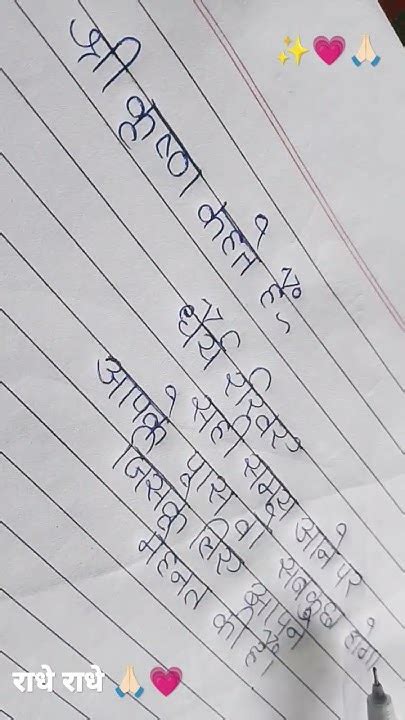 ✨💗🙏🏻
श्री कृष्ण कहते हैं,
धैर्य रखिए
सही समय आने पर
आपके पास वो सबकुछ होगा
जिसके लिए आपने
मेहनत की है।
राधे राधे 🙏🏻💗